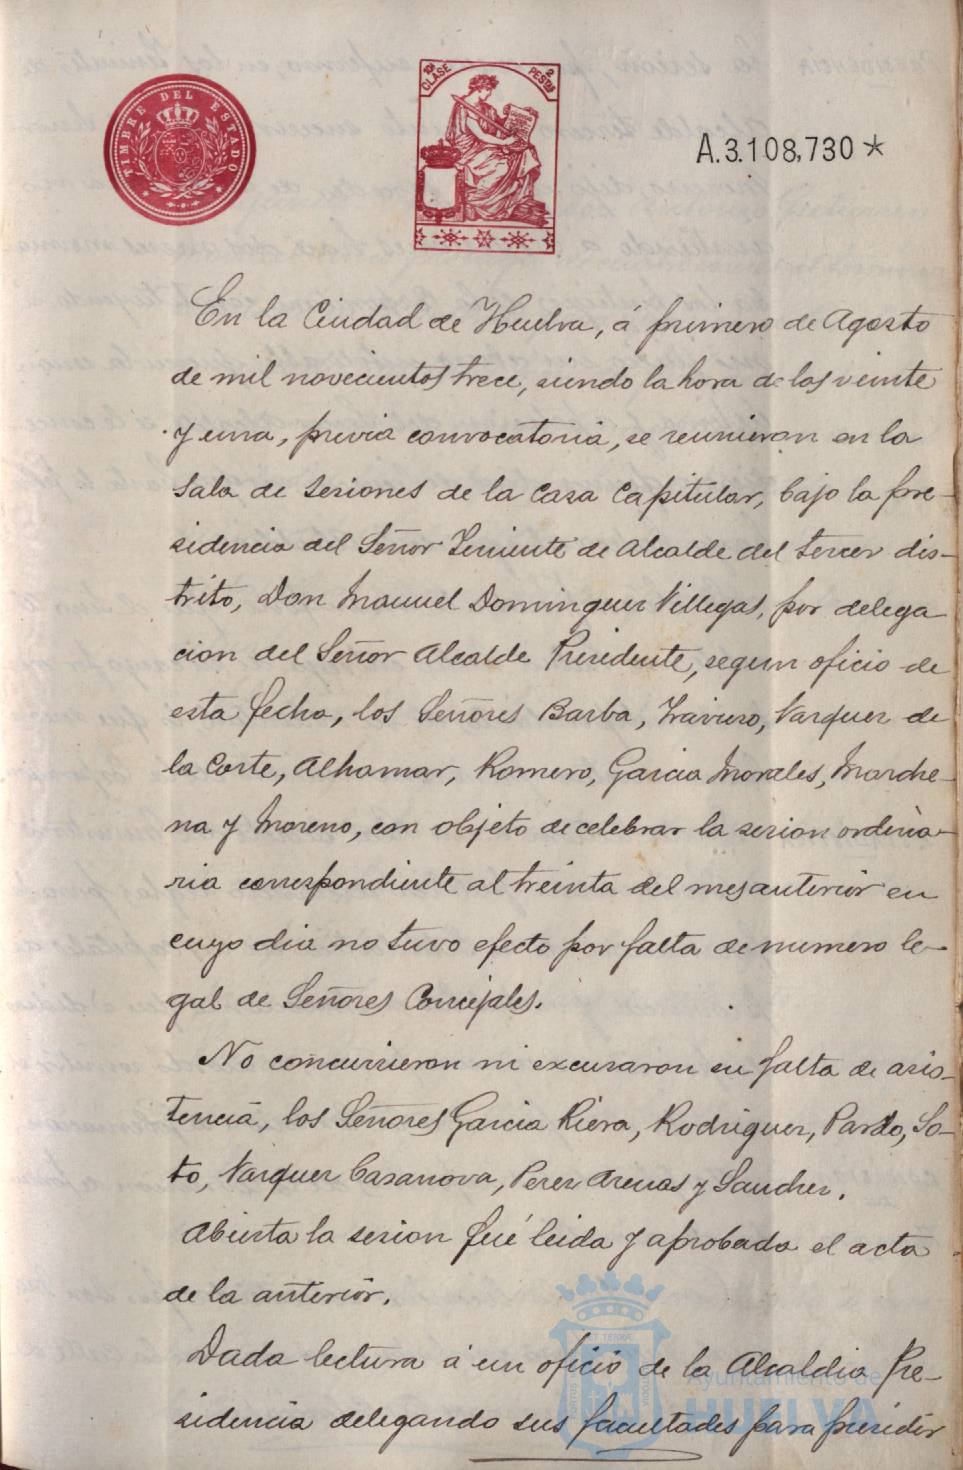 TIMBRE DEL ESTADO
10ª CLASE
2 PESTAS
A.3.108,730 *
En la Ciudad de Huelva, á primero de Agosto
de mil novecientos trece, siendo la hora de las veinte
y una, previa convocatoria, se reunieron en la
Sala de Sesiones de la Casa Capitular, bajo la pre-
sidencia del Señor Teniente de Alcalde del tercer dis-
trito, Don Manuel Dominguez Villegas, por delega
cion del Señor Alcalde Presidente, segun oficio de
esta fecha, los Señores Barba, Travieso, Vazquez de
la Corte, Alhamar, Romero, Garcia Morales, Marche-
na y Moreno, con objeto de celebrar la sesion ordina-
ria correspondiente al treinta del mes anterior en
cuyo dia no tuvo efecto por falta de numero le-
gal de Señores Concejales.
No concurrieron ni excusaron su falta de asis-
tencia, los Señores Garcia Riera, Rodriguez, Pardo, So-
to, Vazquez Casanova, Perez Arenas y Sanchez.
Abierta la sesion fué leida y aprobada el acta
de la anterior.
Dada lectura á un oficio de la Alcaldia Pre-
sidencia delegando sus facultades para presidir
Ayuntamiento de
HUELVA